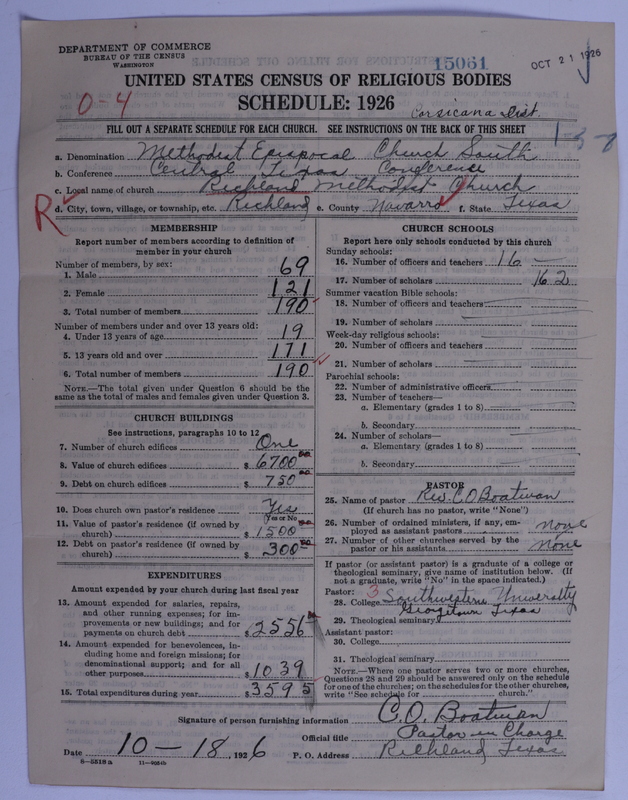 DEPARTMENT OF COMMERCE
BUREAU OF THE CENSUS
WASHINGTON
15061
OCT 21 1926
UNITED STATES CENSUS OF RELIGIOUS BODIES
0-4
SCHEDULE: 1926
Corsicana Dist.
1-3-8
FILL OUT A SEPARATE SCHEDULE FOR EACH CHURCH. SEE INSTRUCTIONS ON THE BACK OF THIS SHEET
a. Denomination Methodist Episcopal Church South
b. Conference Central Texas Conference
c. Local name of church Richland Methodist Church
R
d. City, town, village, or township, etc. Richland e. County Navarro f. State Texas
MEMBERSHIP
Report number of members according to definition of
member in your church
Number of members, by sex:
1. Male 69
2. Female 121
3. Total number of members 190
Number of members under and over 13 years old:
4. Under 13 years of age 19
5. 13 years old and over 171
6. Total number of members 190
NOTE.—The total given under Question 6 should be the
same as the total of males and females given under Question 3.
CHURCH BUILDINGS
See instructions, paragraphs 10 to 12
7. Number of church edifices One
8. Value of church edifices $ 6700 00
9. Debt on church edifices $ 750 00
10. Does church own pastor's residence Yes
(Yes or No)
11. Value of pastor's residence (if owned by
church) $ 1500 00
12. Debt on pastor's residence (if owned by
church) $ 300 00
EXPENDITURES
Amount expended by your church during last fiscal year
13. Amount expended for salaries, repairs,
and other running expenses; for im-
provements or new buildings; and for
payments on church debt $ 2556
14. Amount expended for benevolences, in-
cluding home and foreign missions; for
denominational support; and for all
other purposes $ 1039
15. Total expenditures during year $ 3595
CHURCH SCHOOLS
Report here only schools conducted by this church
Sunday schools:
16. Number of officers and teachers 16 —
17. Number of scholars 162
Summer vacation Bible schools:
18. Number of officers and teachers
19. Number of scholars
Week-day religious schools:
20. Number of officers and teachers
21. Number of scholars
Parochial schools:
22. Number of administrative officers
23. Number of teachers—
a. Elementary (grades 1 to 8)
b. Secondary
24. Number of scholars—
a. Elementary (grades 1 to 8)
b. Secondary
PASTOR
25. Name of pastor Rev. C. O. Boatman
(If church has no pastor, write "None")
26. Number of ordained ministers, if any, em-
ployed as assistant pastors none
27. Number of other churches served by the
pastor or his assistants None
If pastor (or assistant pastor) is a graduate of a college or
theological seminary, give name of institution below. (If
not a graduate, write "No" in the space indicated.)
Pastor: 3
28. College Southwestern University
Georgetown Texas
29. Theological seminary
Assistant pastor:
30. College
31. Theological seminary
NOTE.—Where one pastor serves two or more churches,
Questions 28 and 29 should be answered only on the schedule
for one of the churches; on the schedules for the other churches,
write "See schedule for church."
Signature of person furnishing information C. O. Boatman
Official title Pastor in Charge
Date 10-18, 1926 P. O. Address Richland Texas
8-5518a 11-9054b